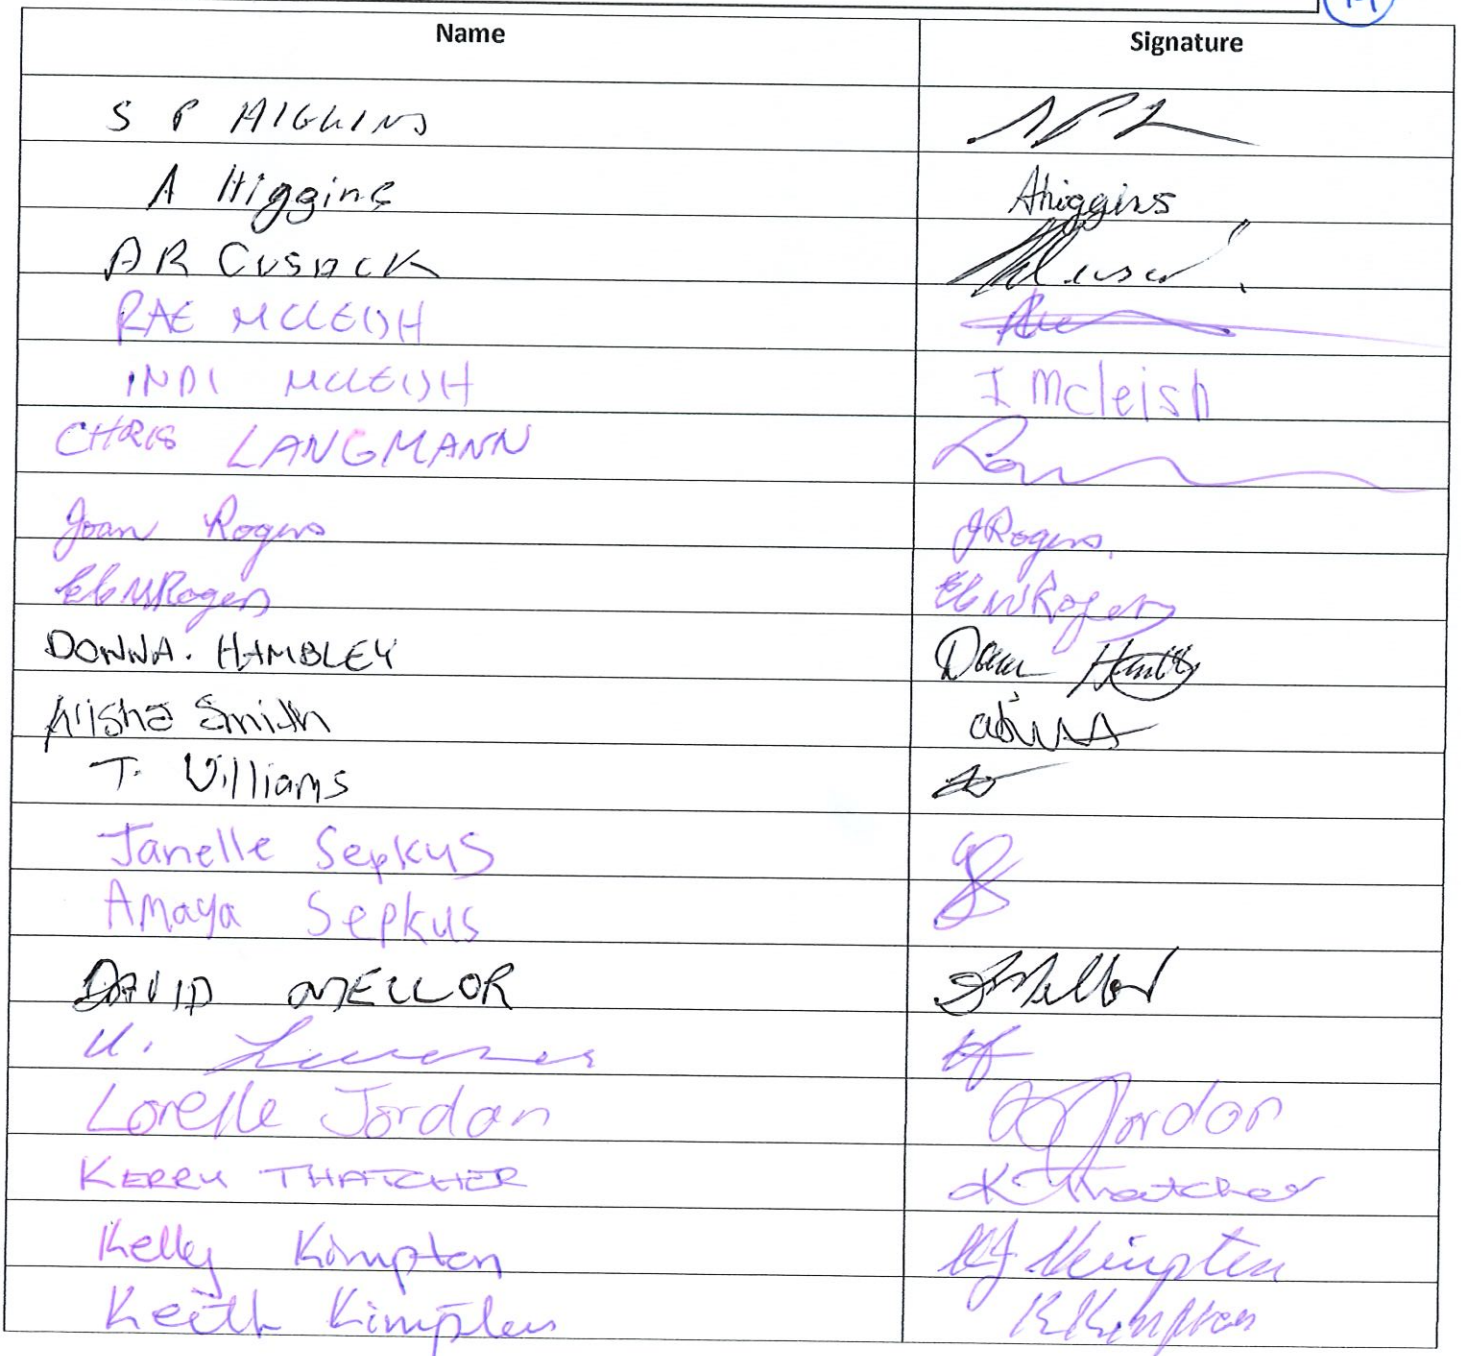 Name Signature
S P HIGGINS
A Higgins AHiggins
A R CUSACK
RAE MCLEISH
INDI MCLEISH I Mcleish
CHRIS LANGMANN
Joan Rogers JRogers.
Rogers Rogers
DONNA. HAMBLEY
Alisha Smith
T. Williams
Janelle Sepkus
Amaya Sepkus
DAVID MELLOR Mellor
Lorelle Jordan Jordan
KERRY THATCHER K Thatcher
Kelly Kimpton KJ Kimpton
Keith Kimpton K Kimpton